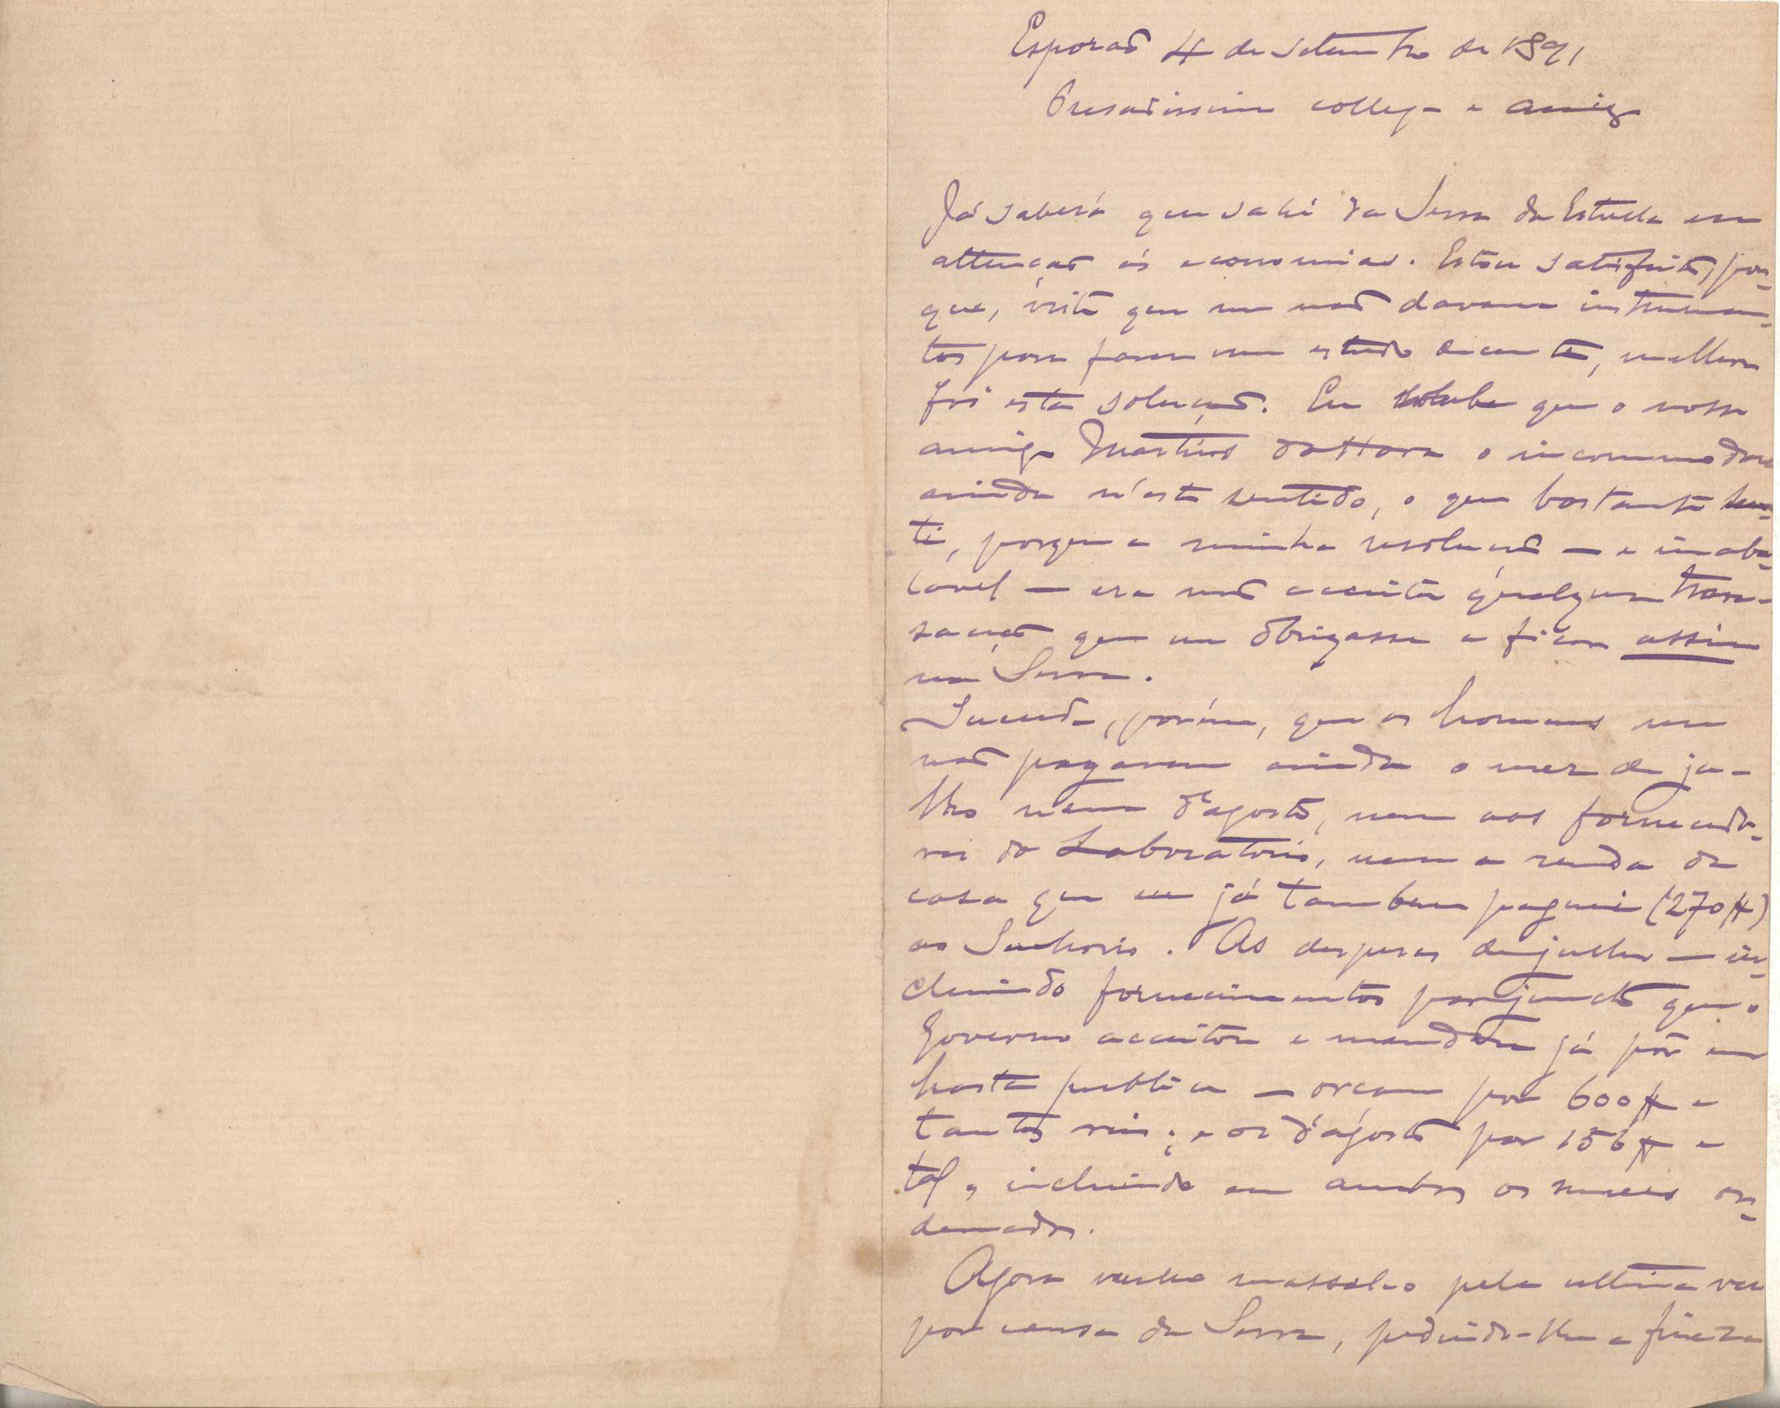 Esporaõ 4 de Setembro de 1891
Presadissimo collega e amigo
Já saberá que sahi da Serra da Estrella em
attençaõ ás economias. Estou satisfeito, por-
que, visto que me naõ davam instrumen-
tos para fazer um estudo decente, melhor
foi esta soluçaõ. Eu soube que o nosso
amigo Martins da Hora o incommodou
ainda n'este sentido, o que bastante sen-
ti, porque a minha resoluçaõ — e inaba-
lavel — era naõ acceitar qualquer tran-
sacçaõ que me obrigasse a ficar assim
na Serra.
Succede, porém, que os homens me
naõ pagaram ainda o mez de ju-
lho nem d'agosto, nem aos fornecedo-
res do Laboratorio, nem a renda da
casa que eu já tambem paguei (270$)
ao Senhorio. As despezas de julho — in-
cluindo fornecimentos por junto que o
Governo acceitou e mandou já pôr em
hasta publica — orçam por 600$ e
tantos reis; e os d'agosto por 156$ e
tal, incluindo em ambos os mezes or-
denados.
Agora venho massal-o pela ultima vez
por causa da Serra, pedindo-lhe a fineza